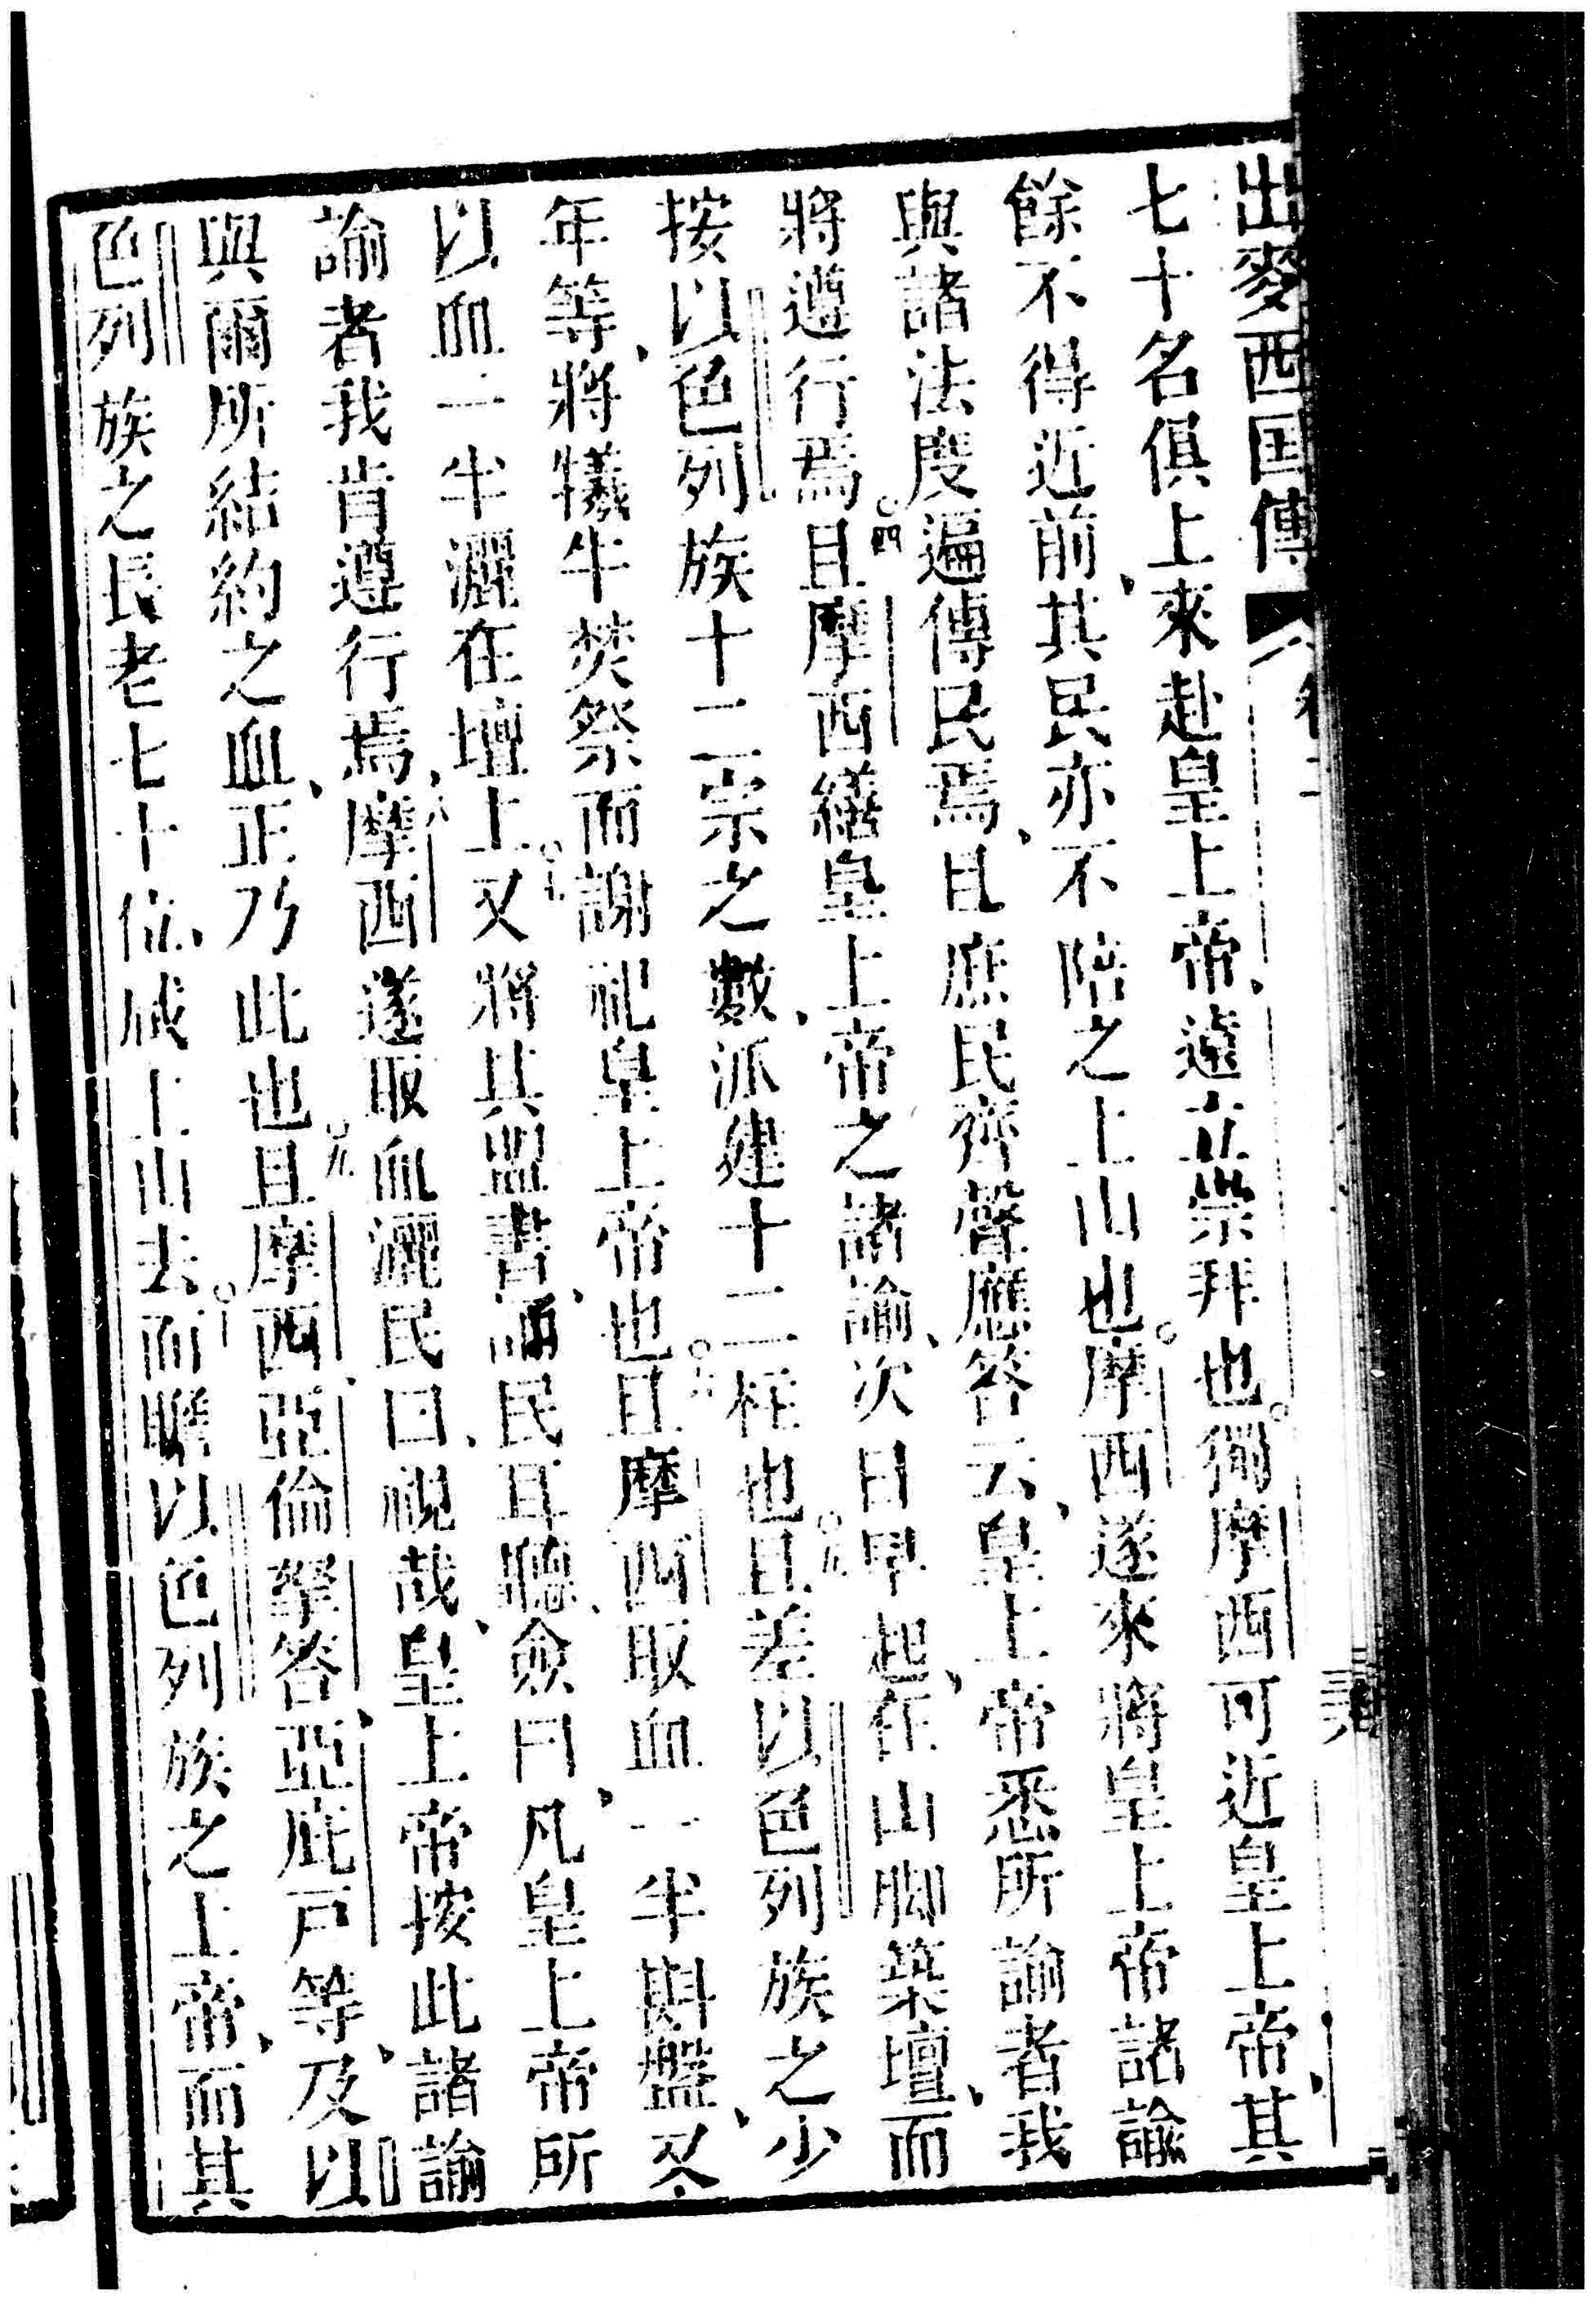 出麥西国傳
七十名俱上來赴皇上帝、遠立崇拜也○獨摩西可近皇上帝、其
餘不得近前、其民亦不陪之上山也○摩西遂來將皇上帝諸諭
與諸法度遍傳民焉、且庶民齊聲應答云、皇上帝悉所諭者我
將遵行焉○四且摩西繕皇上帝之諸諭、次日早起、在山脚築壇、而
按以色列族十二宗之數、派建十二柱也○五且差以色列族之少
年等、將犧牛焚祭而謝祀皇上帝也○六且摩西取血一半斟盤、又
以血一半灑在壇上○七又將其盟書、誦民耳聽、僉曰、凡皇上帝所
諭者我肯遵行焉、八摩西遂取血灑民曰、視哉、皇上帝按此諸諭
與爾所結約之血、正乃此也○九且摩西、亞倫拏答、亞庇戶等、及以
色列族之長老七十位、咸上山去○十而瞻以色列族之上帝、而其